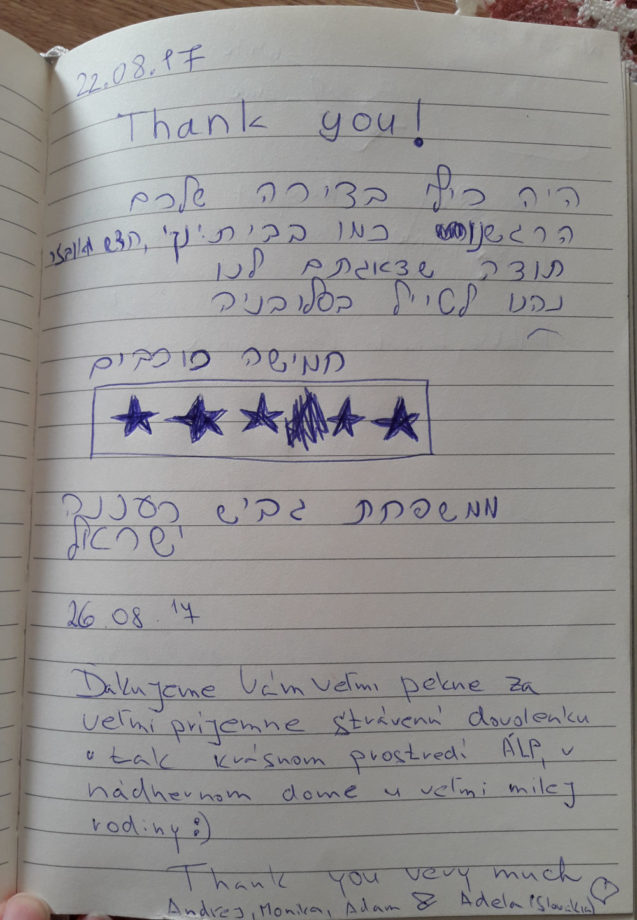 22.08.17
Thank you!
היה כיף בדירה שלכם
הרגשנו כמו בבית. נקי, חדש
תודה שדאגתם לנו
נהנו לטייל בסלובניה
חמישה כוכבים
ממשפחת גביש רעננה
ישראל
26.08.17
Dakujeme Vám veľmi pekne za
veľmi prijemne strávenú dovolenku
v tak krásnom prostredí ÁLP, v
nádhernom dome u veľmi milej
rodiny :)
Thank you very much
Andrej, Monika, Adam & Adela (Slovakia)